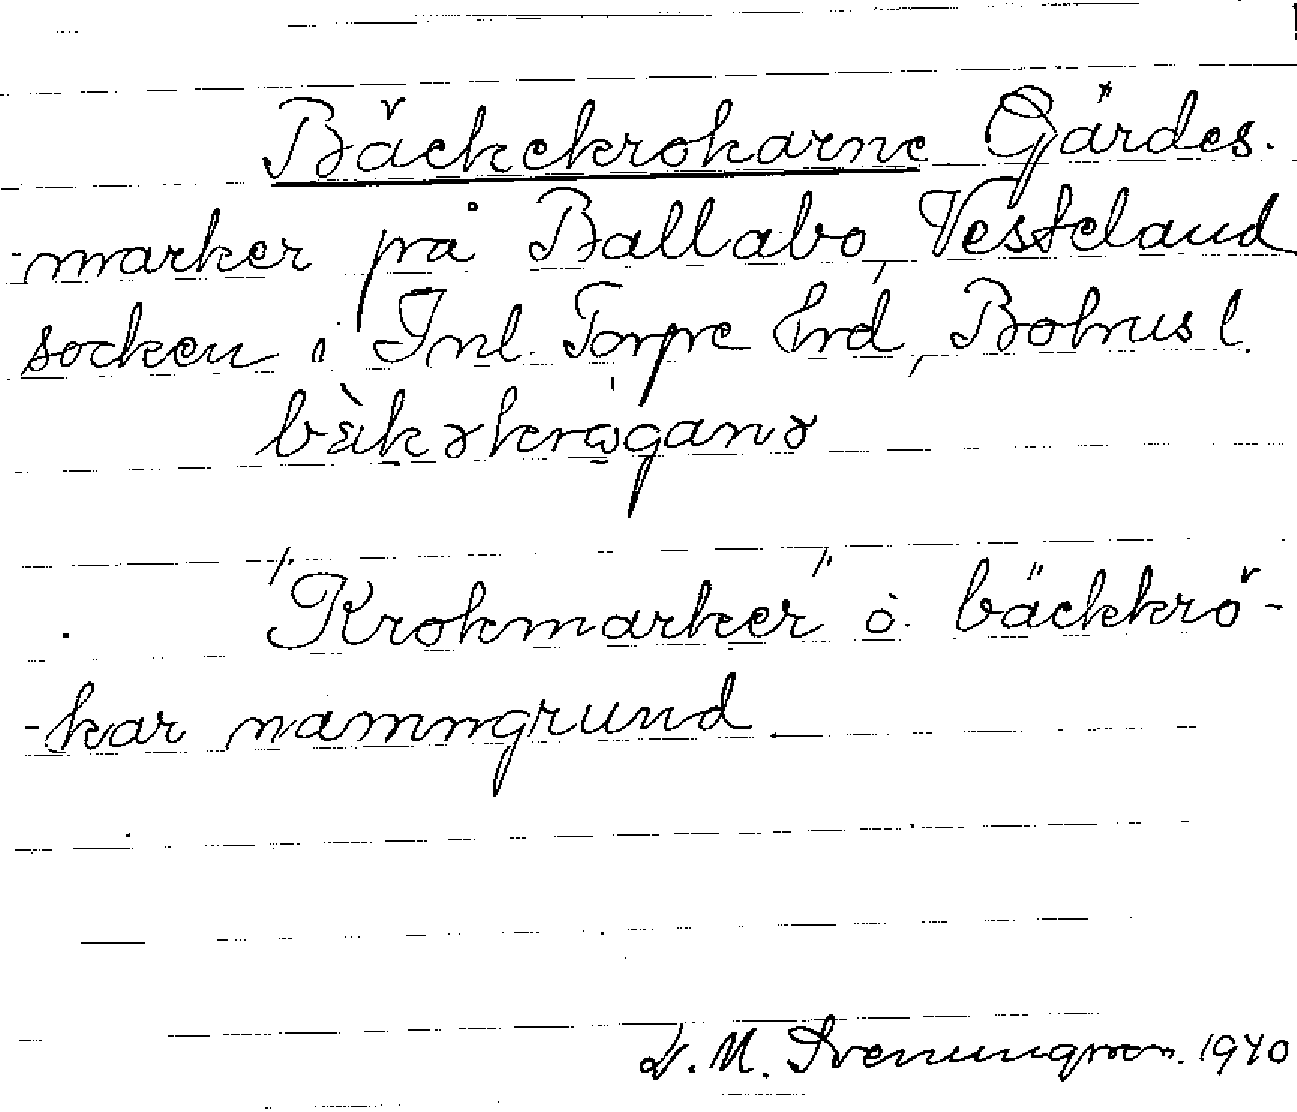 Bäckekrokarne Gärdes-
-marker på Ballabo, Vesteland
socken i Inl. Torpe Hrd, Bohusl.
bäkəkrøganə
"Krokmarker" o. bäckkrö-
-kar namngrund
D. M. Svenungsson. 1940